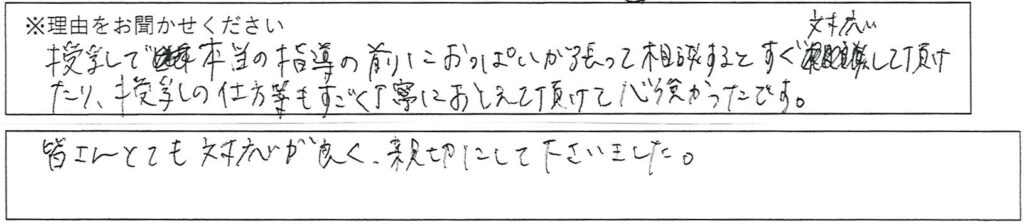 ※理由をお聞かせください
授乳しで本当の指導の前におっぱいが張って相談するとすぐ対応して頂け
たり、授乳しの仕方等もすごく丁寧におとえて頂けて心強かったです。
皆さんとても対応が良く、親切にして下さいました。